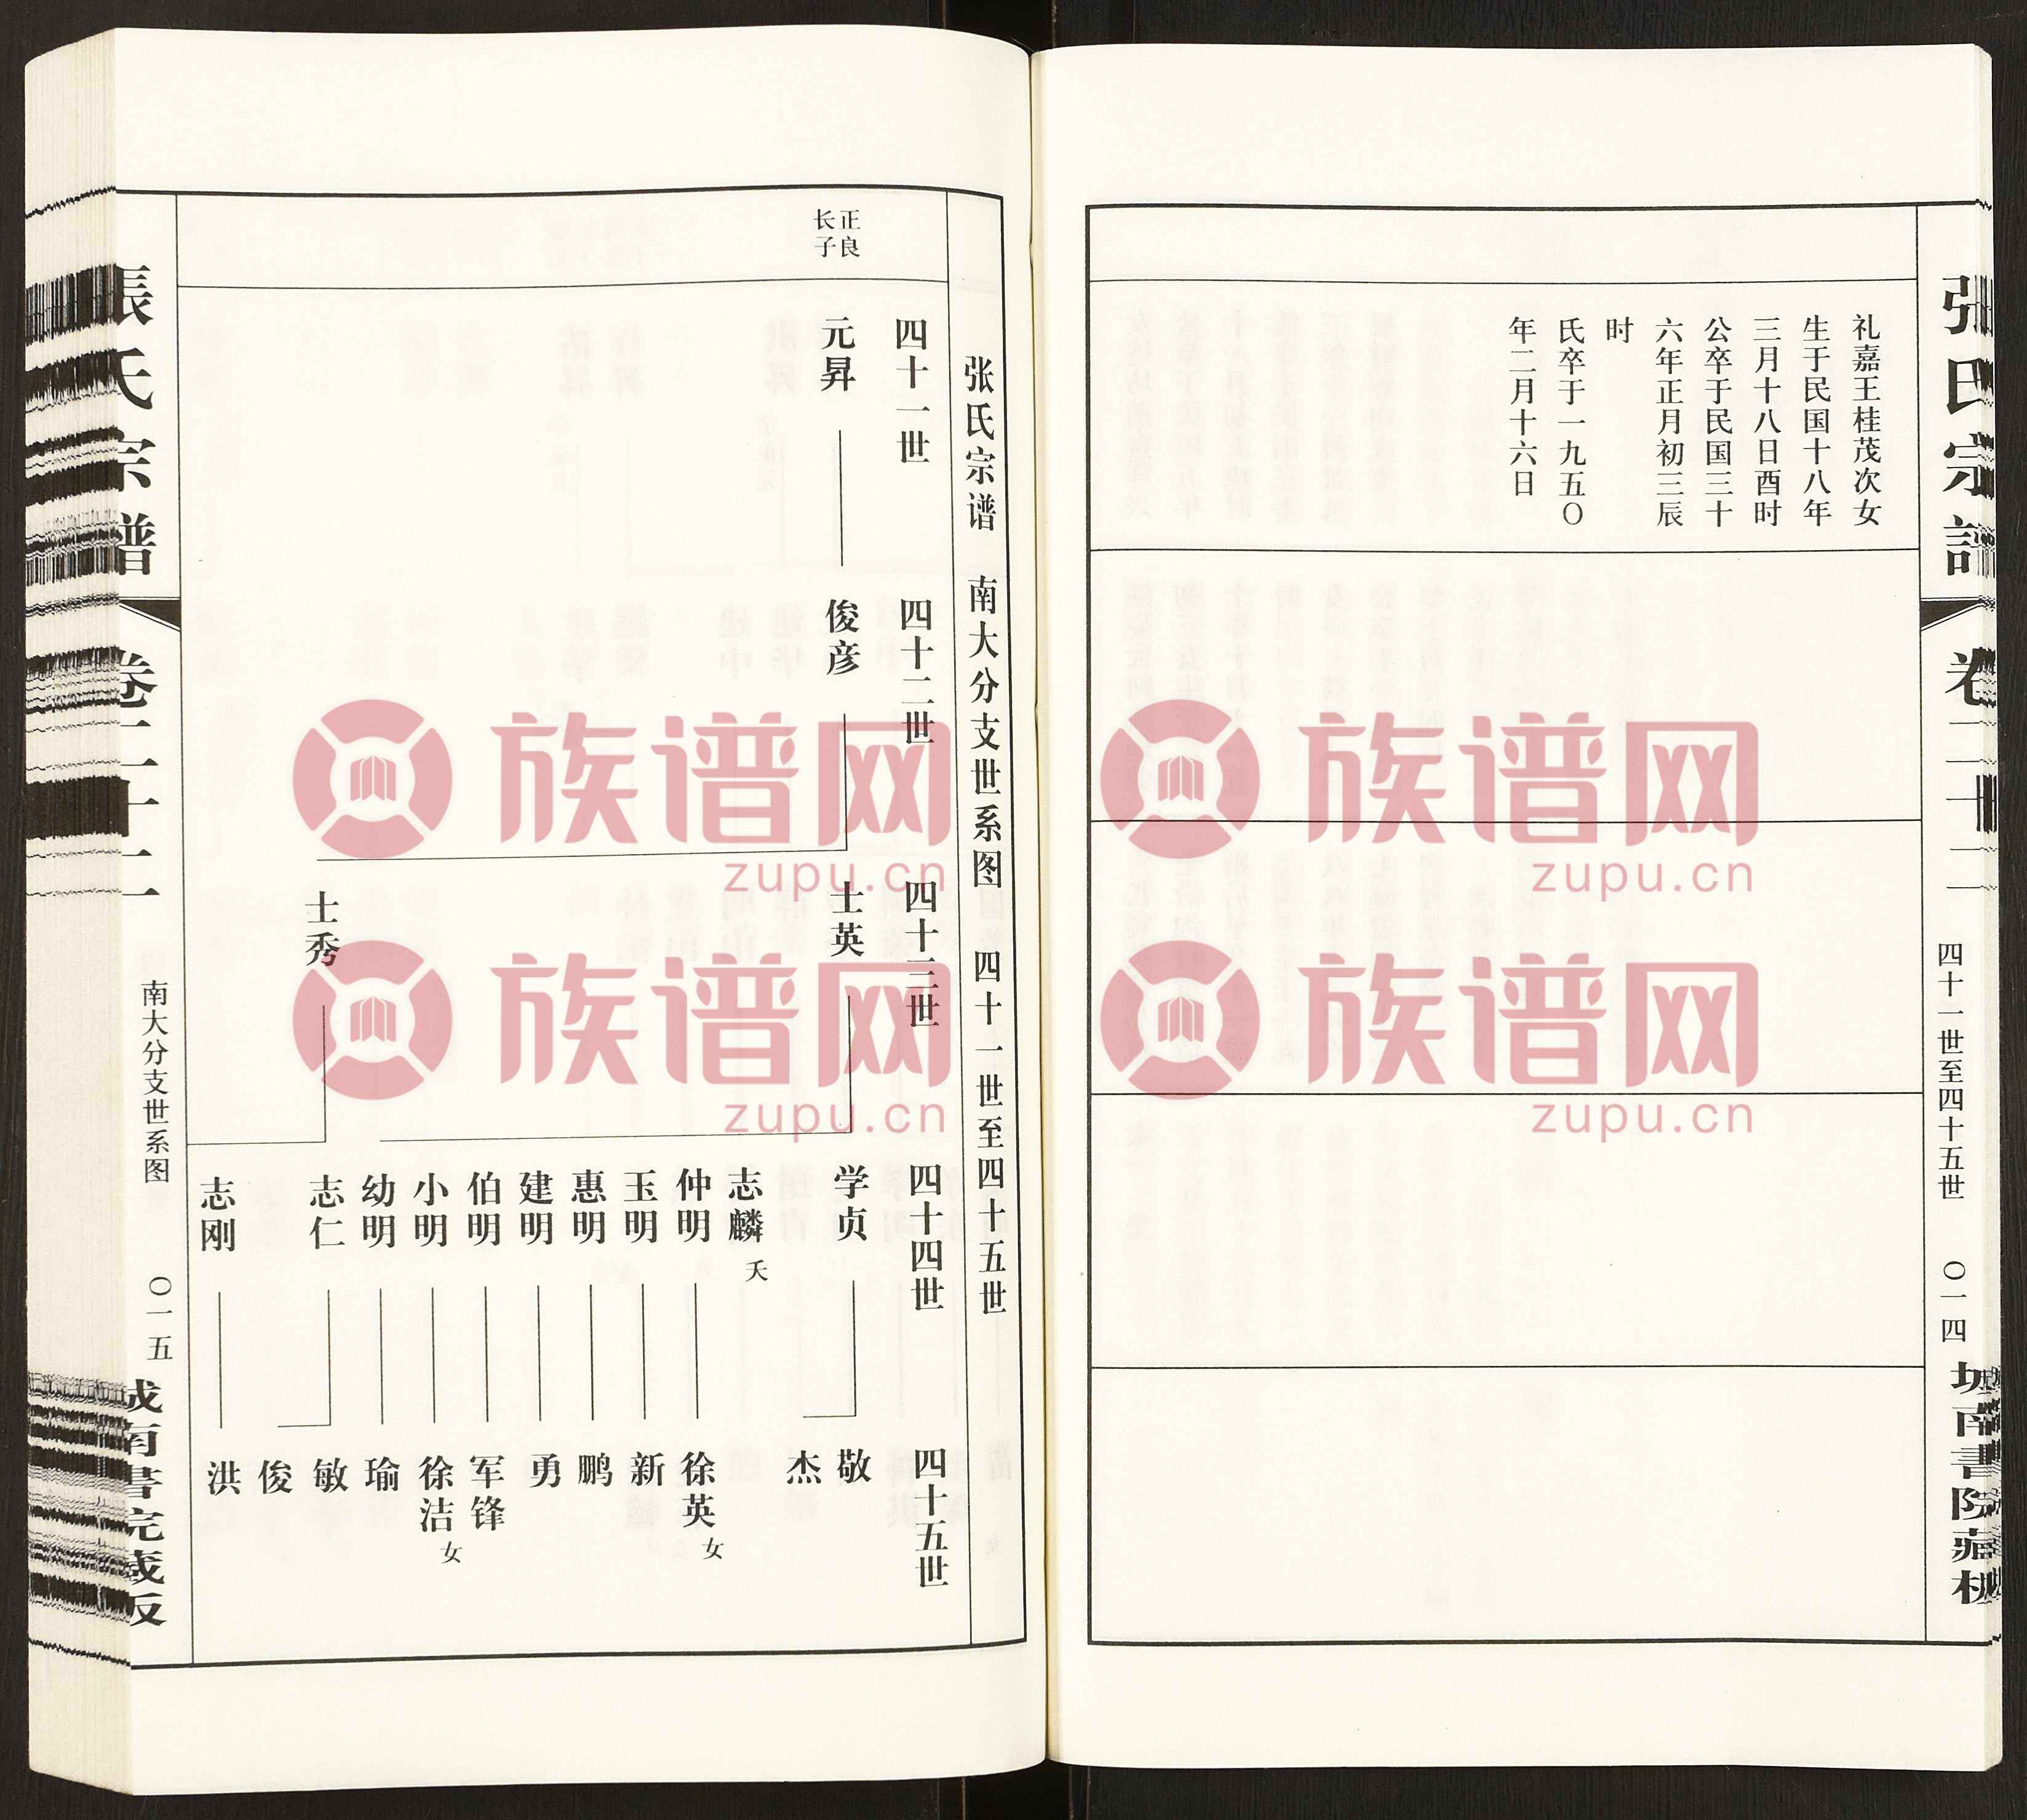 张氏宗譜
卷二十二
四十一世至四十五世
〇一四
礼嘉王桂茂次女
生于民国十八年
三月十八日酉时
公卒于民国三十
六年正月初三辰
时
氏卒于一九五〇
年二月十六日
张氏宗谱 南大分支世系图 四十一世至四十五世
四十一世
四十二世
四十三世
四十四世
四十五世
正良
长子
元昇
俊彦
士英
士秀
学贞
志麟 夭
仲明
玉明
惠明
建明
伯明
小明
幼明
志仁
志刚
敬
杰
徐英 女
新
鹏
勇
军锋
徐洁 女
瑜
敏
俊
洪
張氏宗譜
卷二十二
南大分支世系图
〇一五
族谱网
zupu.cn
族谱网
zupu.cn
族谱网
zupu.cn
族谱网
zupu.cn